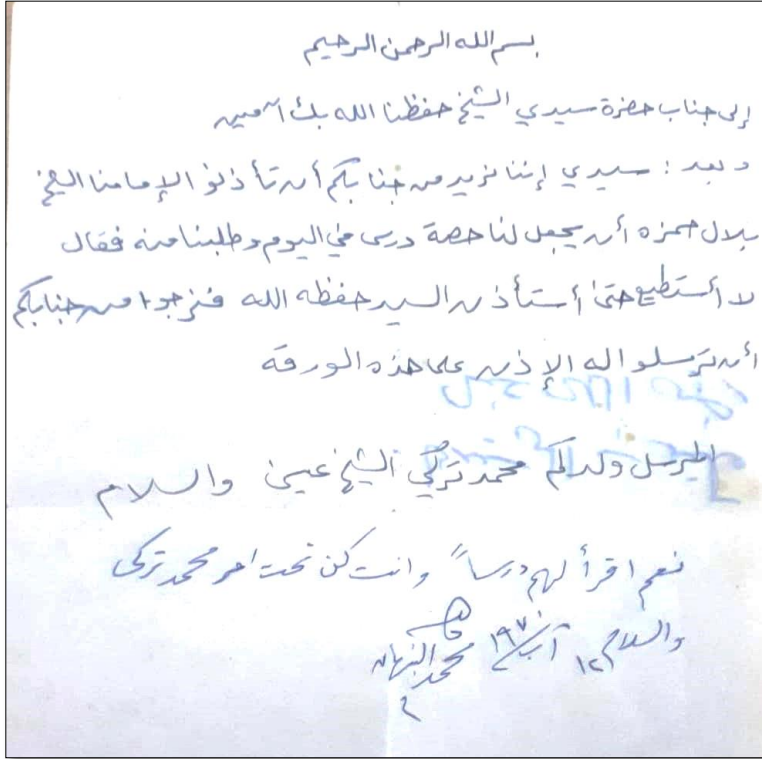 بسم الله الرحمن الرحيم
إلى جناب حضرة سيدي الشيخ حفظنا الله بك آمين
وبعد : سيدي إننا نريد من جنابكم أن تأذنو الإمامنا الشيخ
بلال حمزه أن يجعل لنا حصة درس في اليوم وطلبنا منه فقال
لا أستطيع حتى أستأذن السيد حفظه الله فنرجوا من جنابكم
أن ترسلو اله الإذن على هذه الورقة
المرسل ولدكم محمد تركي الشيخ عيسى والسلام
نعم اقرأ لهم درساً وانت كن تحت امر محمد تركي
والسلام ١٢ آب ١٩٧٠
محمد النبهان